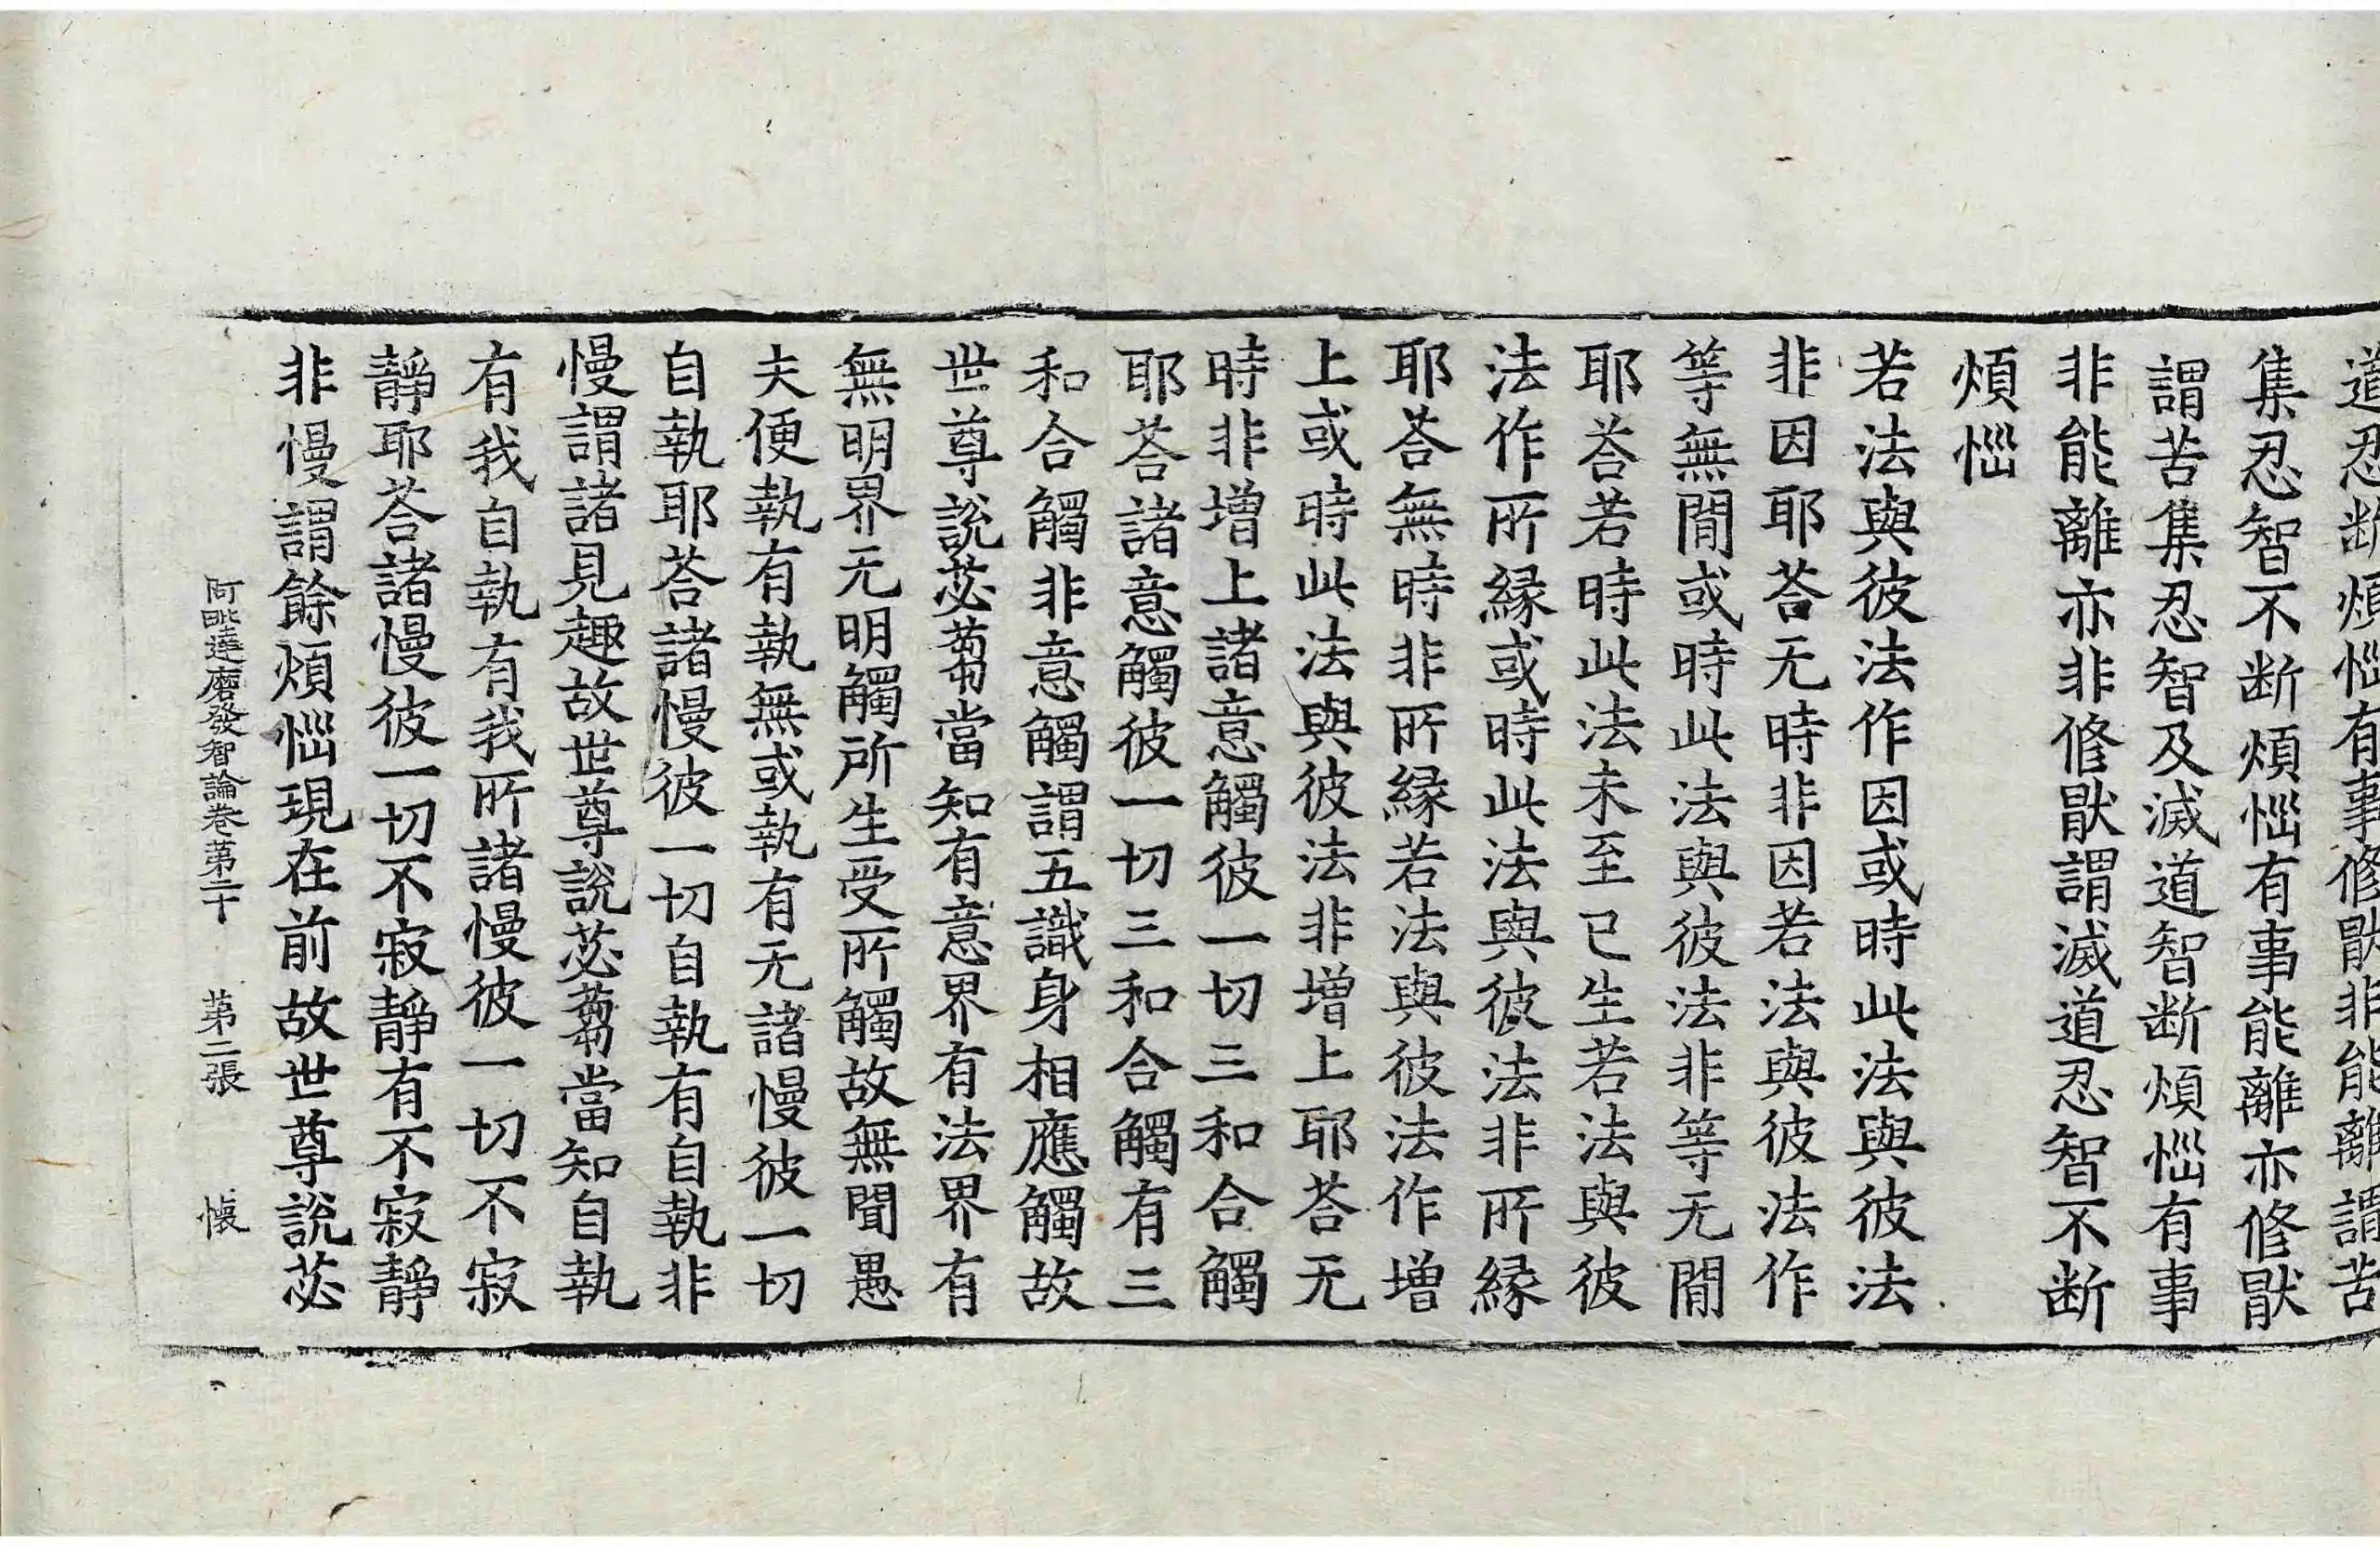 道忍断煩惱有事修猒非能離謂苦
集忍智不断煩惱有事能離亦修猒
謂苦集忍智及滅道智断煩惱有事
非能離亦非修猒謂滅道忍智不断
煩惱
若法與彼法作因或時此法與彼法
非因耶荅无時非因若法與彼法作
等無閒或時此法與彼法非等无閒
耶荅若時此法未至已生若法與彼
法作所緣或時此法與彼法非所緣
耶荅無時非所緣若法與彼法作增
上或時此法與彼法非增上耶荅无
時非增上諸意觸彼一切三和合觸
耶荅諸意觸彼一切三和合觸有三
和合觸非意觸謂五識身相應觸故
世尊說苾蒭當知有意界有法界有
無明界无明觸所生受所觸故無聞愚
夫便執有執無或執有无諸慢彼一切
自執耶荅諸慢彼一切自執有自執非
慢謂諸見趣故世尊說苾蒭當知自執
有我自執有我所諸慢彼一切不寂
靜耶荅諸慢彼一切不寂靜有不寂靜
非慢謂餘煩惱現在前故世尊說苾
阿毗達磨發智論卷第二十　第二張　懐